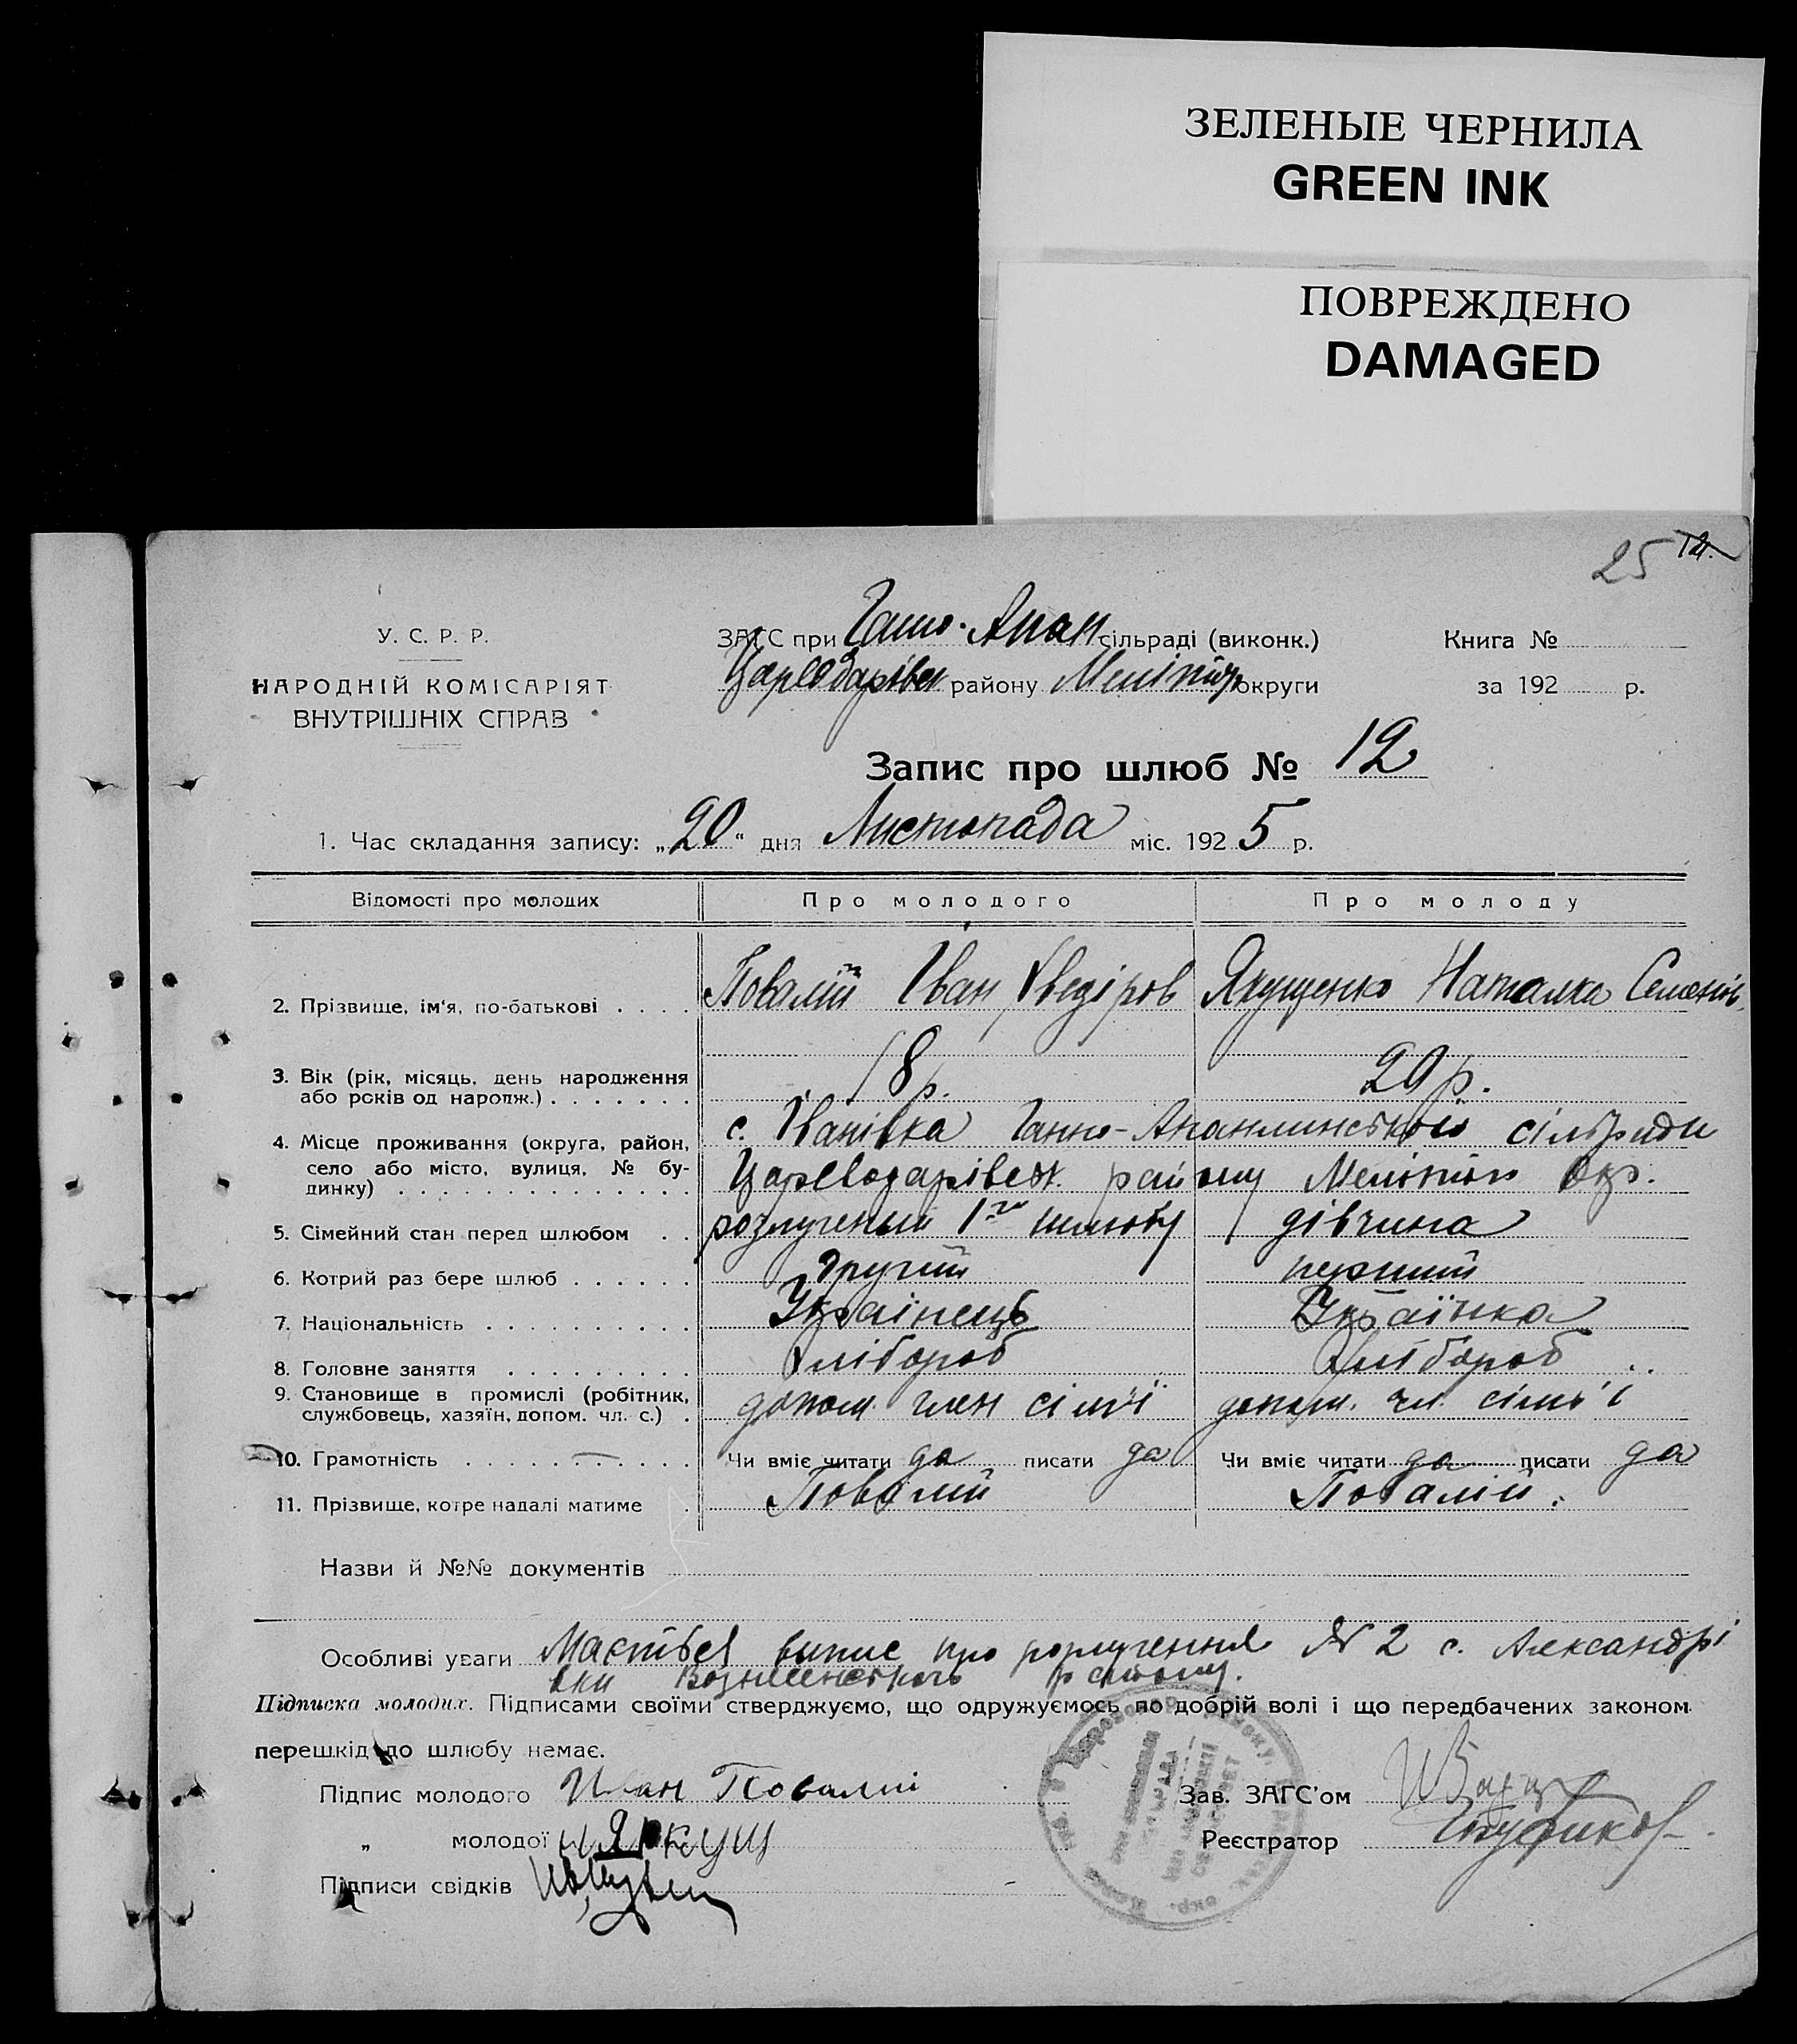 ЗЕЛЕНЫЕ ЧЕРНИЛА
GREEN INK
ПОВРЕЖДЕНО
DAMAGED
25 12.
У. С. Р. Р.
НАРОДНІЙ КОМІСАРІЯТ
ВНУТРІШНІХ СПРАВ
ЗАГС при Ганно-Анан сільраді (виконк.)
району Меліт округи
Книга №
за 192 р.
Запис про шлюб № 12
1. Час складання запису: „20“ дня Листопада міс. 1925 р.
Відомості про молодих Про молодого Про молоду
2. Прізвище, ім'я, по-батькові . . . . Повалій Іван Хведіров Якущенко Наталка Семенів.
3. Вік (рік, місяць, день народження
або років од народж.) . . . . . . . 18 р. 20 р.
4. Місце проживання (округа, район, с. Іванівка Ганно-Ананлинської сільради
село або місто, вулиця, № бу-
динку) . . . . . . . . . . . . . . Цареводарівск. району Окр.
5. Сімейний стан перед шлюбом . . розлучений 1го шлюбу дівчина
6. Котрий раз бере шлюб . . . . . . другий перший
7. Національність . . . . . . . . . . Українець Українка
8. Головне заняття . . . . . . . . . Хлібороб Хлібороб
9. Становище в промислі (робітник,
службовець, хазяїн, допом. чл. с.) . допом. член сімї допом. чл. сім'ї
10. Грамотність . . . . . . . . . . . Чи вміє читати да писати да Чи вміє читати да писати да
11. Прізвище, котре надалі матиме . Повалій Повалій.
Назви й №№ документів
Особливі уваги Мається випис про розлучення № 2 с. Александрі
вки Вознесенского району.
Підписка молодих. Підписами своїми стверджуємо, що одружуємось по добрій волі і що передбачених законом
перешкід до шлюбу немає.
Підпис молодого Иван Повалий
„ молодої Якущ
Підписи свідків
Зав. ЗАГС'ом
Реєстратор